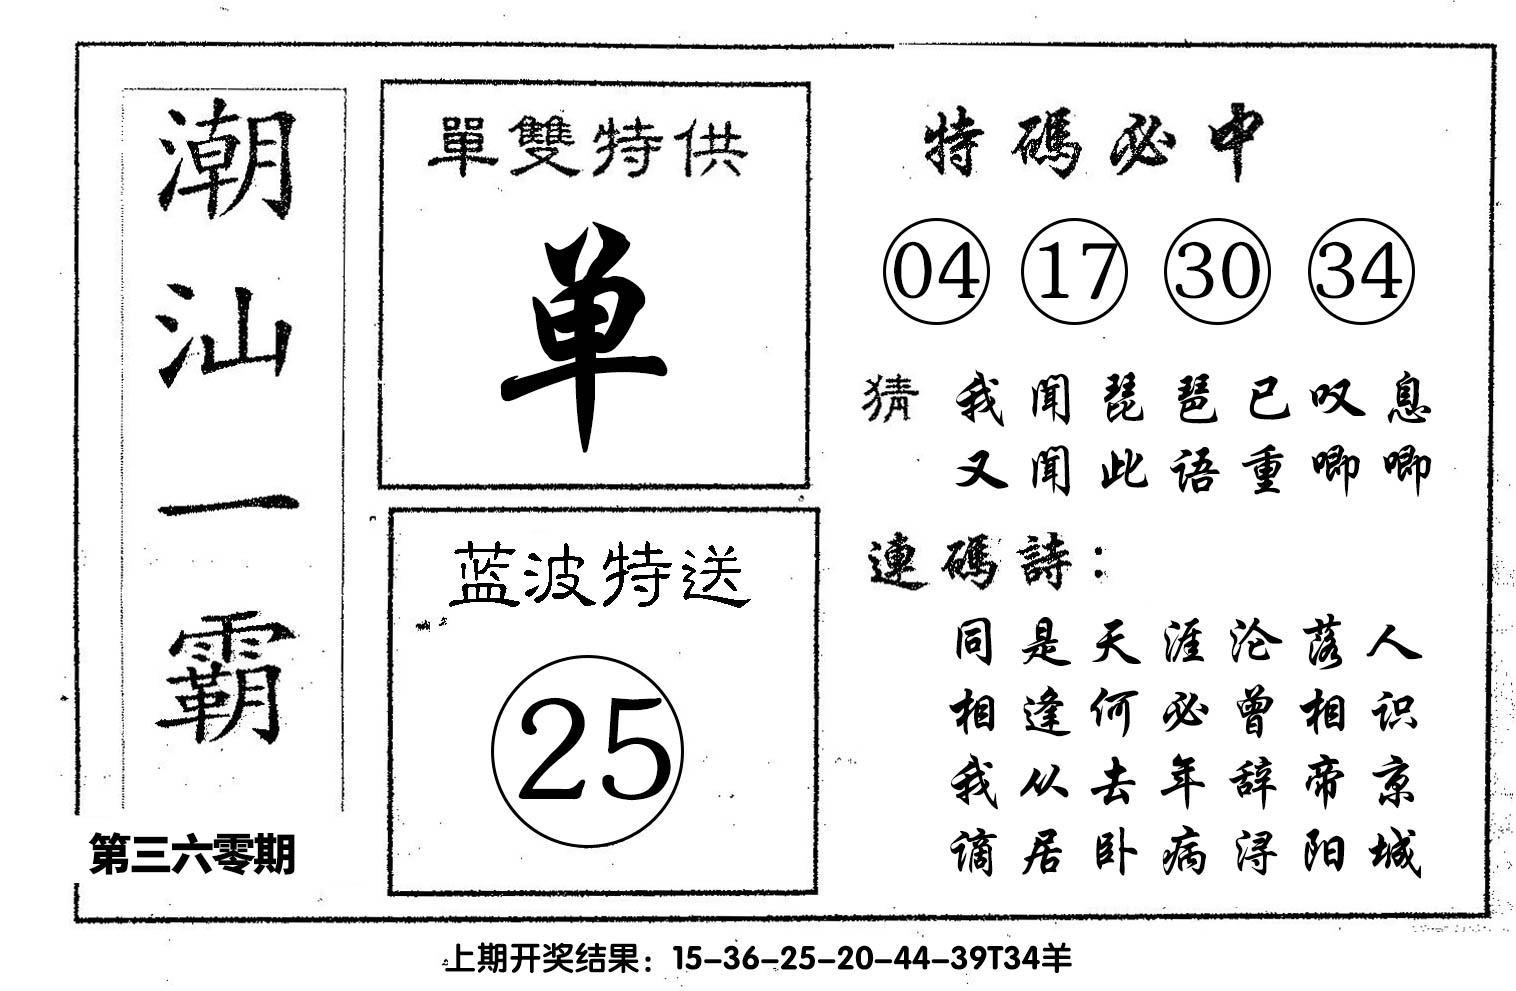 潮汕一霸
第三六零期
單雙特供
单
蓝波特送
25
特碼必中
04 17 30 34
猜 我闻琵琶已叹息
又闻此语重唧唧
連碼詩：
同是天涯沦落人
相逢何必曾相识
我从去年辞帝京
谪居卧病浔阳城
上期开奖结果：15-36-25-20-44-39T34羊